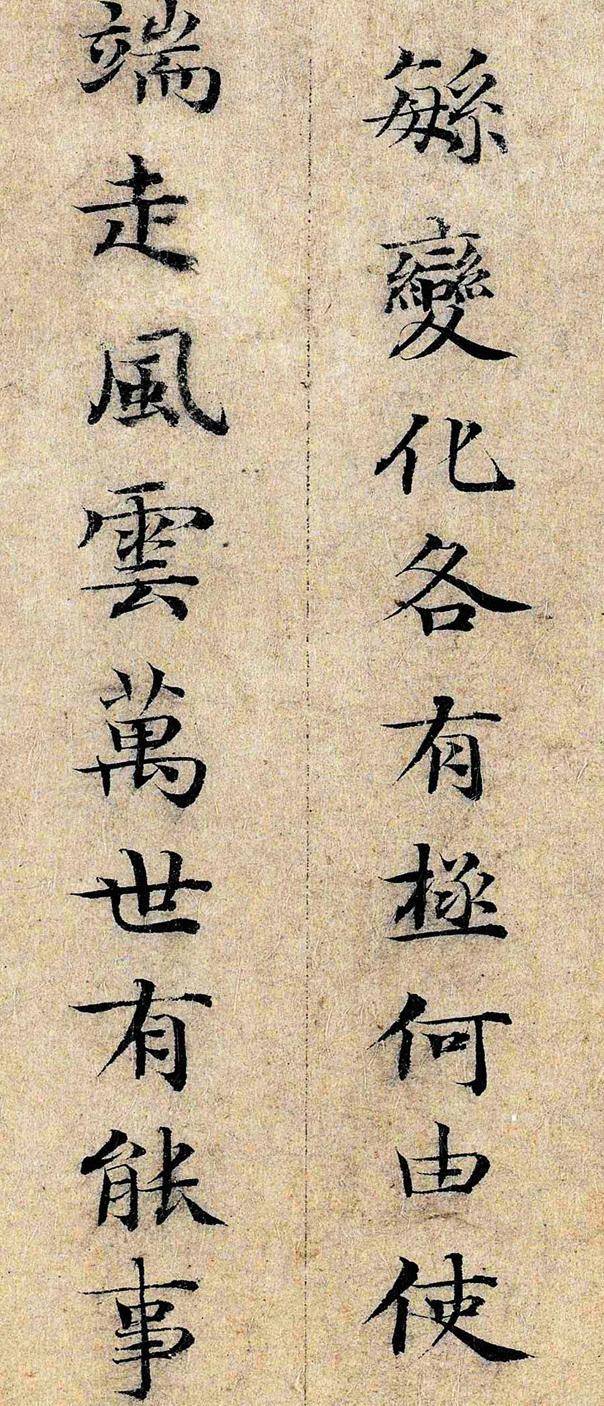 繁變化各有極何由使
端走風雲萬世有能事